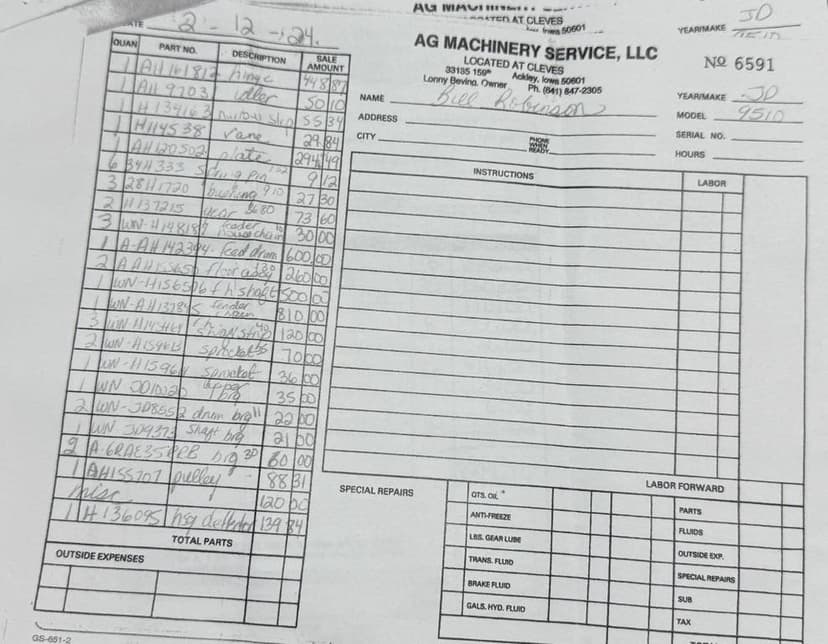 AG MACHINERY SE
LOCATED AT CLEVES
Iowa 50601
DATE 2-12-24.
YEAR/MAKE JD
9510
AG MACHINERY SERVICE, LLC
LOCATED AT CLEVES
33185 159th Ackley, Iowa 50601
Lonny Bevins, Owner Ph. (641) 847-2305
Nº 6591
NAME Bill Robinson
ADDRESS
CITY
PHONE WHEN READY
YEAR/MAKE JD
MODEL 9510
SERIAL NO.
HOURS
QUAN PART NO. DESCRIPTION SALE AMOUNT
1 hinge 448 87
1 AH 9703 idler 50 10
1 H 134163 narrow strip 55 34
1 H114538 vane 29 84
1 AH120502 plate 294 49
6 34H333 spring pin 1.52 9 12
3 28H1720 bushing 9.10 27 30
2 H137215 gear 36.80 73 60
3 WN-H148187 feeder house chain 30 00
1 A-AH142394 feed drum 600.00
2 floor 260 00
1 WN-H156506 f h shaft 500 00
1 WN-AH137845 feeder chain 810 00
3 strip 120 00
2 sprocket 35 70 00
1 sprocket 36 00
1 WN JD10120 upper brg 35 00
2 WN-JD8552 drum brg 11 22 00
1 WN JD9373 shaft brg 21 00
2 A-6RAE35RRB brg 30 60 00
1 AH155707 pulley 88 31
misc 120 00
1 H136095 hsg deflector 139 84
TOTAL PARTS
OUTSIDE EXPENSES
GS-651-2
INSTRUCTIONS LABOR
LABOR FORWARD
SPECIAL REPAIRS
QTS. OIL
ANTI-FREEZE
LBS. GEAR LUBE
TRANS. FLUID
BRAKE FLUID
GALS. HYD. FLUID
PARTS
FLUIDS
OUTSIDE EXP.
SPECIAL REPAIRS
SUB
TAX